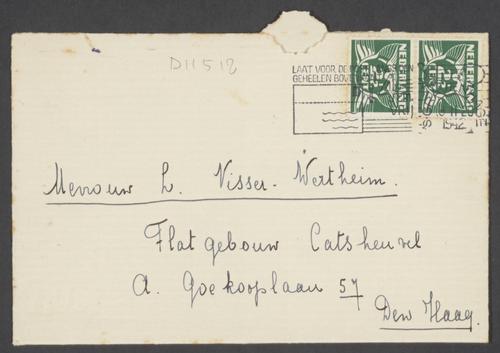 D11512
LAAT VOOR DE
GEHEELEN BOV
NEDERLAND
NEDERLAND
1942
Mevrouw L. Visser-Wertheim.
Flatgebouw Catsheuvel
A. Goekooplaan 57
Den Haag.